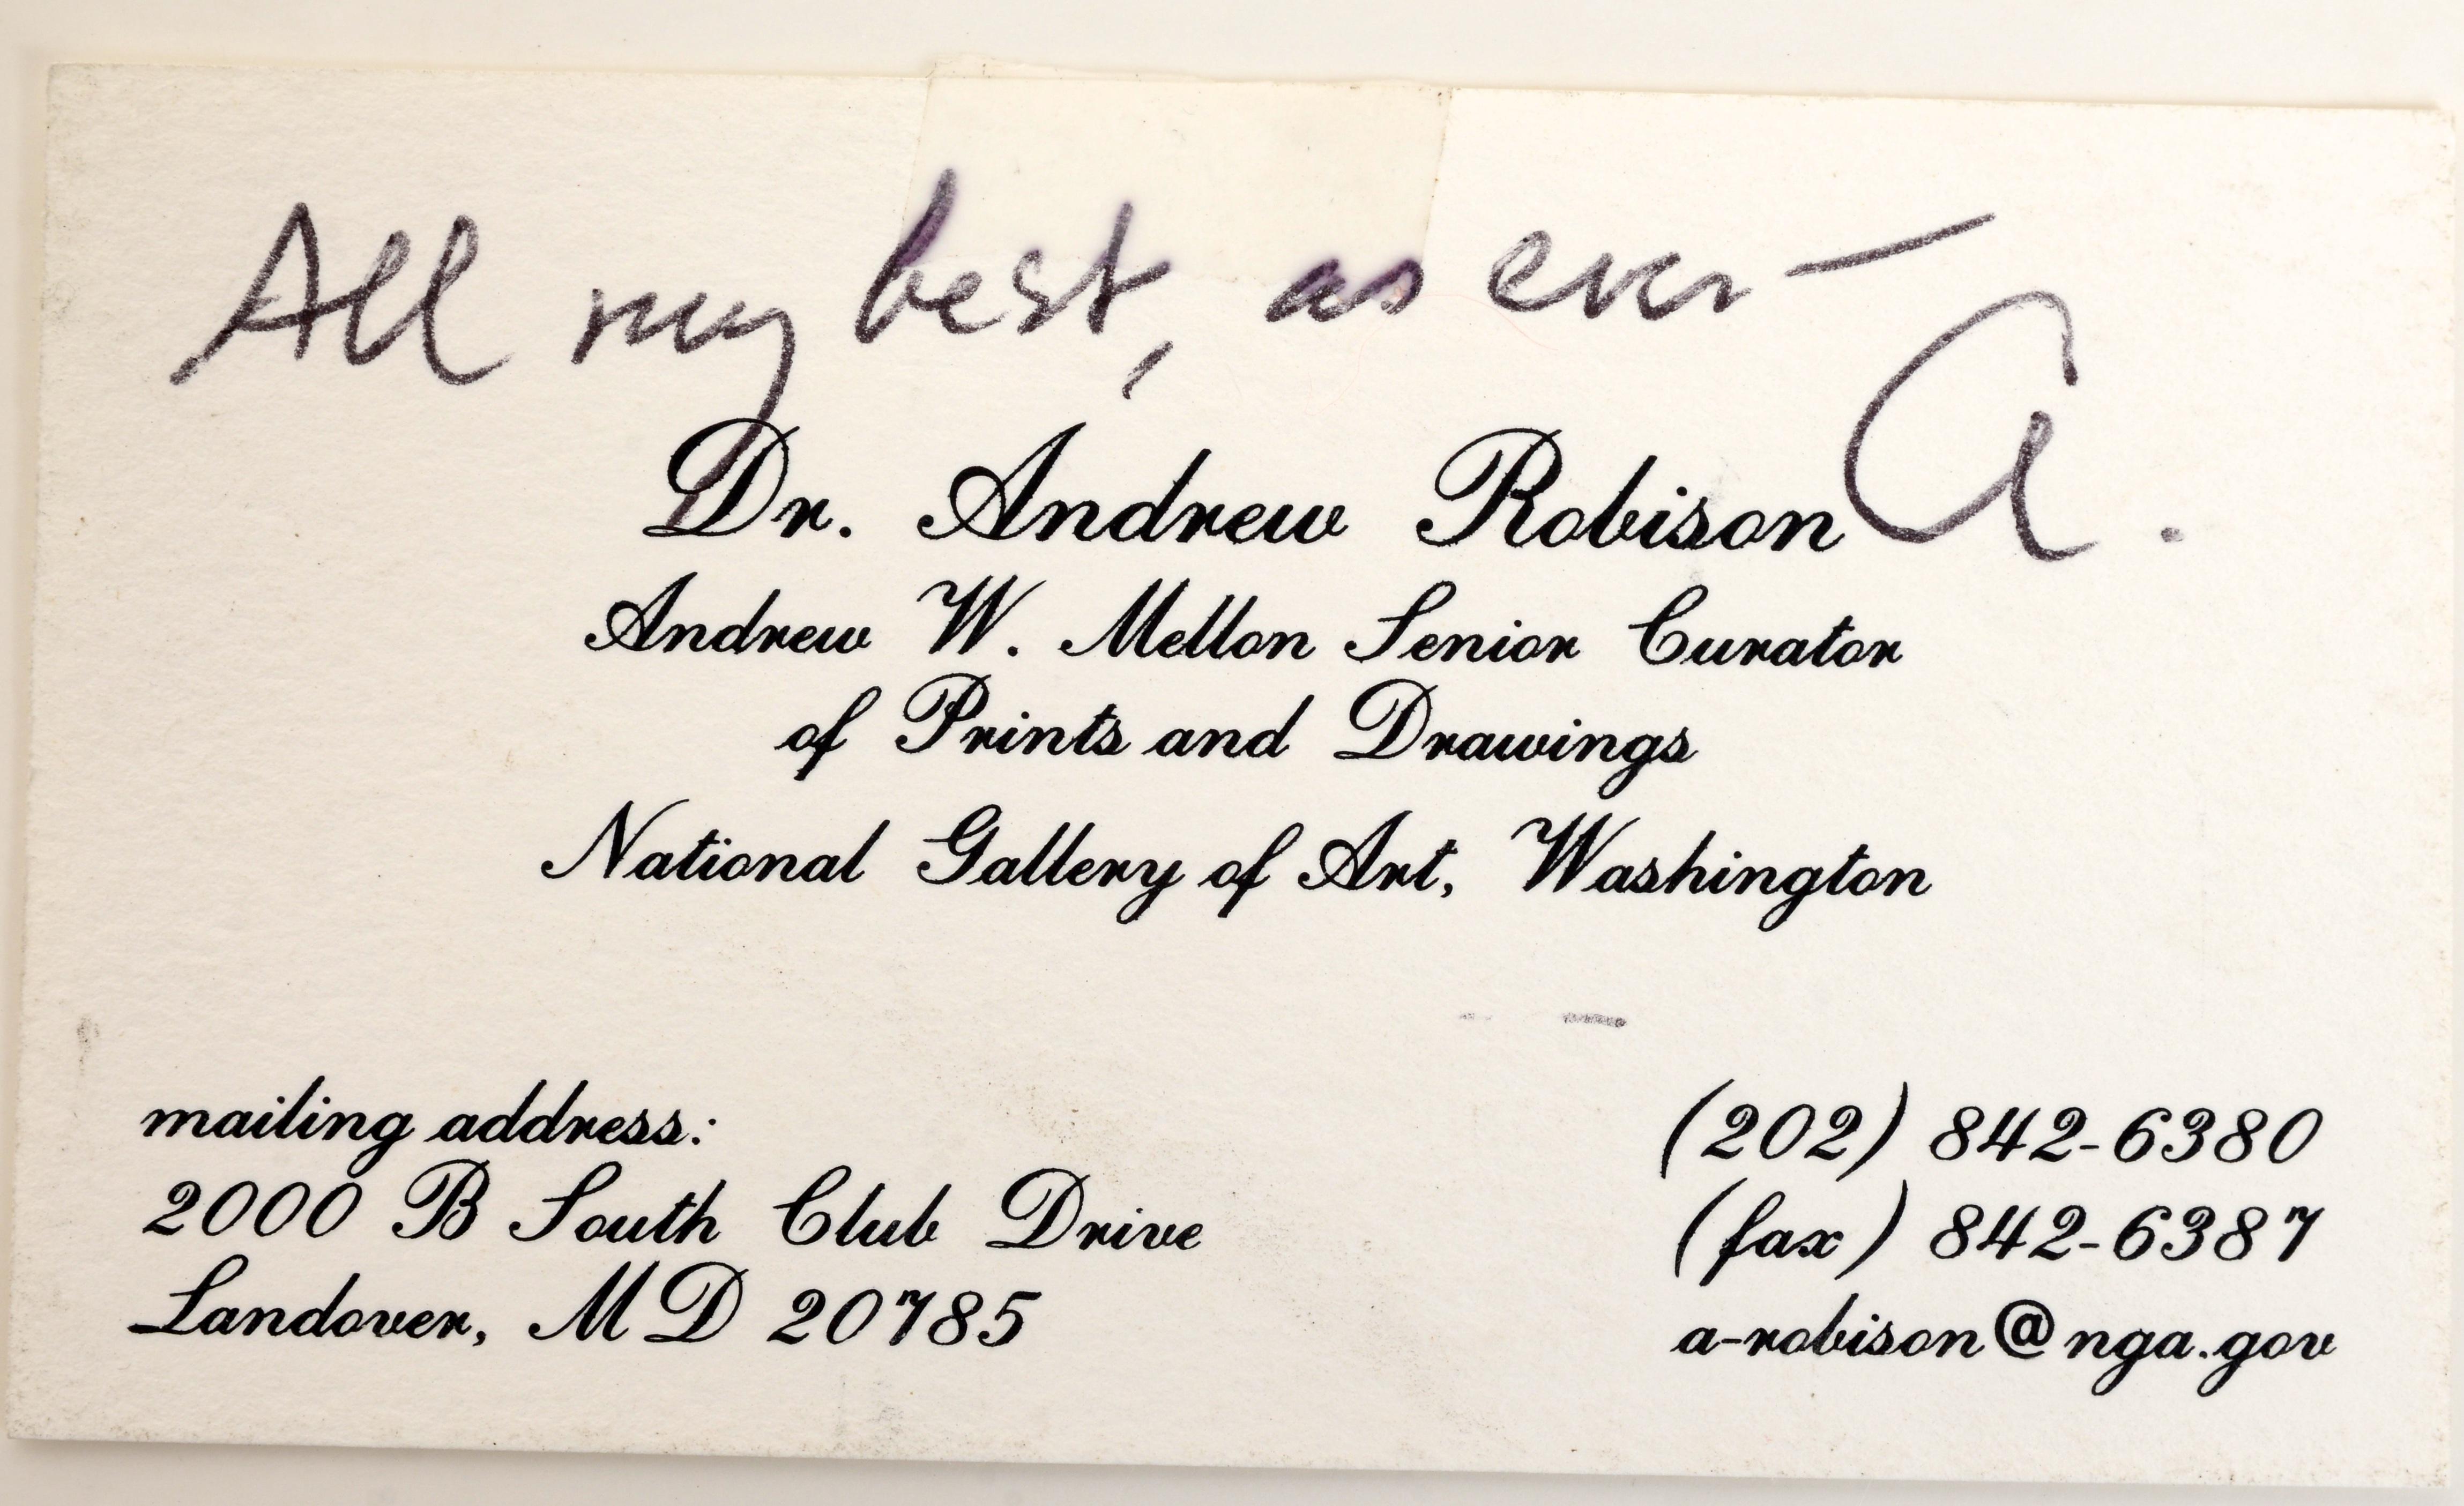 All my best, as ever —
A.
Dr. Andrew Robison
Andrew W. Mellon Senior Curator
of Prints and Drawings
National Gallery of Art, Washington
mailing address:
2000 B South Club Drive
Landover, MD 20785
(202) 842-6380
(fax) 842-6387
a-robison@nga.gov